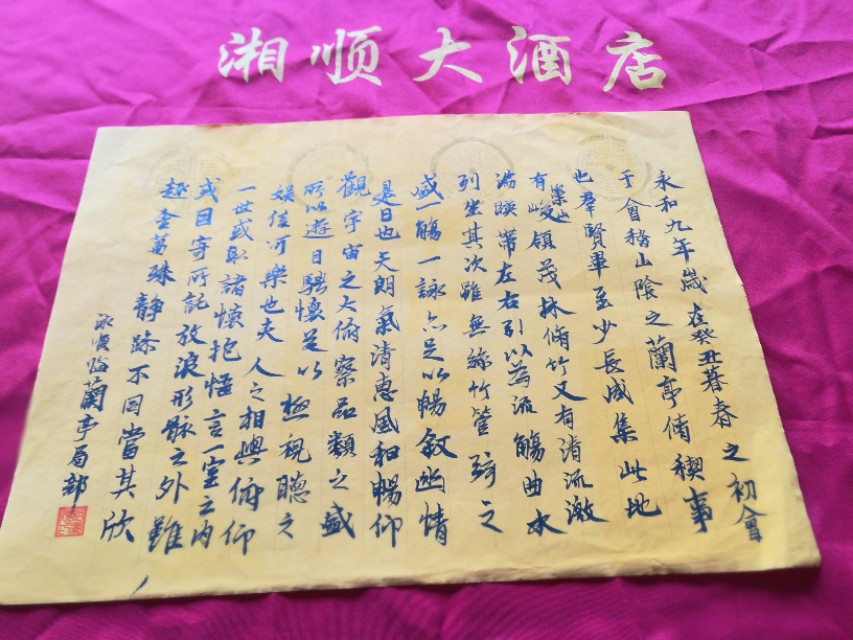 湘顺大酒店
永和九年歲在癸丑暮春之初會
于會稽山陰之蘭亭脩稧事
也群賢畢至少長咸集此地
有崇山峻領茂林脩竹又有清流激
湍暎帶左右引以為流觴曲水
列坐其次雖無絲竹管弦之
盛一觴一詠亦足以暢敘幽情
是日也天朗氣清惠風和暢仰
觀宇宙之大俯察品類之盛
所以遊目騁懷足以極視聽之
娛信可樂也夫人之相與俯仰
一世或取諸懷抱悟言一室之內
或因寄所託放浪形骸之外雖
趣舍萬殊靜躁不同當其欣
临蘭亭局部